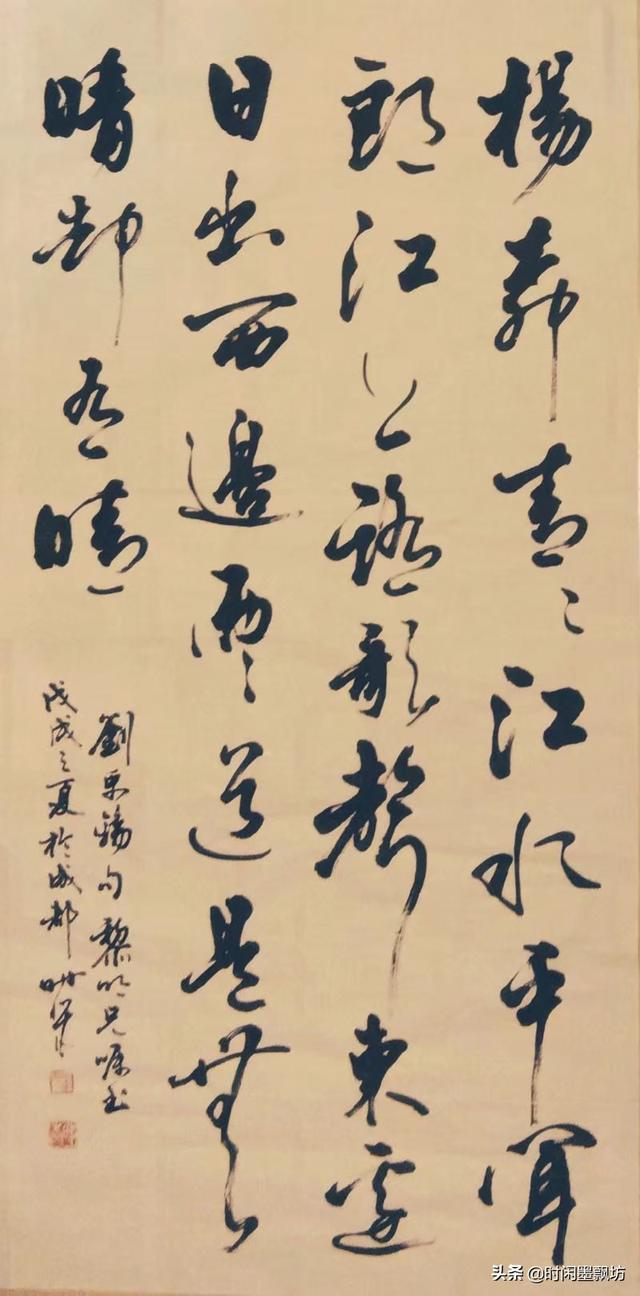 楊柳青〻江水平聞
郎江上踏歌聲東邊
日出西邊雨道是無
晴却有晴
劉禹錫句黎明兄嘱書
戊戌之夏於成都
头条 @时闲墨飘坊